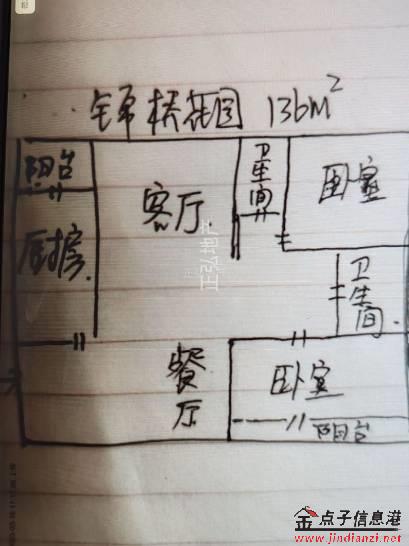 锦桥花园 136m²
阳台
客厅
卫生间
卧室
厨房
卫生间
餐厅
卧室
阳台
正弘地产
金点子信息港
www.jindianzi.net